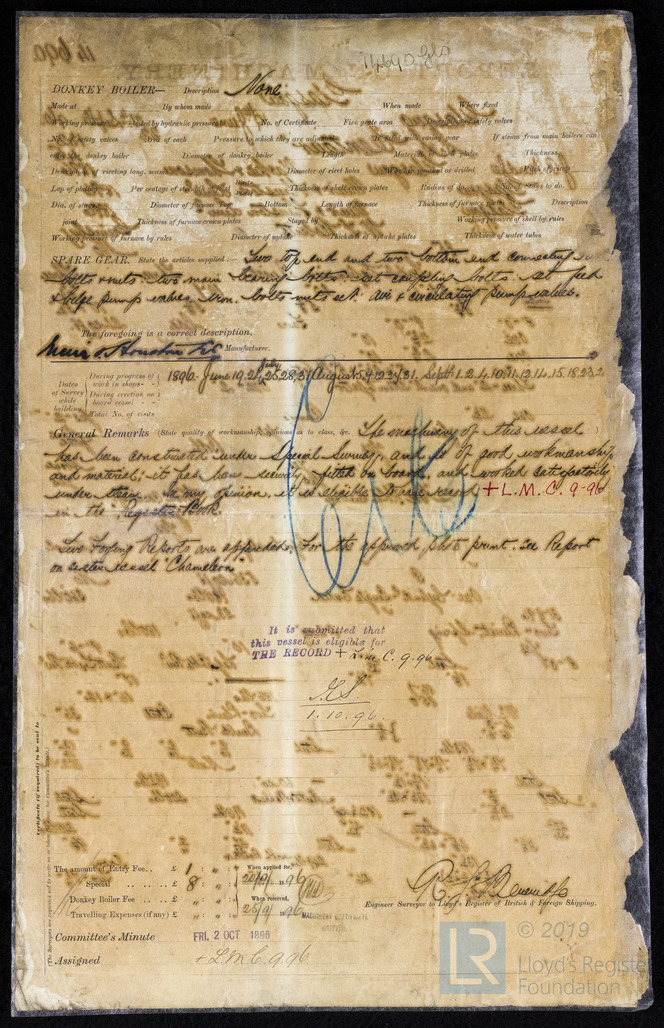 14690 Gls
DONKEY BOILER— Description None
Made at By whom made When made Where fixed
Working pressure tested by hydraulic pressure to No. of Certificate Fire grate area Description of safety valves
No. of safety valves Area of each Pressure to which they are adjusted If fitted with easing gear If steam from main boilers can
enter the donkey boiler Diameter of donkey boiler Length Material of shell plates Thickness
Description of riveting long. seams Diameter of rivet holes Whether punched or drilled Pitch of rivets
Lap of plating Per centage of strength of joint Rivets Thickness of shell crown plates Radius of do. Stays to do.
Dia. of stays Diameter of furnace Top Bottom Length of furnace Thickness of furnace plates Description
joint Thickness of furnace crown plates Stayed by Working pressure of shell by rules
Working pressure of furnace by rules Diameter of uptake Thickness of uptake plates Thickness of water tubes
SPARE GEAR. State the articles supplied:— Two top end and two bottom end connecting
bolts & nuts: two main bearing bolts: set coupling bolts: set feed
& bilge pump valves: iron: bolts nuts set: air & circulating pump valves.
The foregoing is a correct description,
Manufacturer.
Dates of Survey while building
During progress of work in shops - -
During erection on board vessel - - -
Total No. of visits
1896. June 19. 25, 28, 31 August 5, 31. Sept 1. 2. 4. 10. 11. 12. 14. 15. 18. 23.
General Remarks (State quality of workmanship, opinions as to class, &c. The machinery of this vessel
has been constructed under Special Survey, and is of good workmanship
and material; it has been securely fitted on board, and worked satisfactorily
under steam. In my opinion, it is eligible to have record + L.M.C. 9-96
in the Register Book.
Two Forging Reports are appended. For the approved photo print. see Report
on sister vessel "Chameleon"
It is submitted that
this vessel is eligible for
THE RECORD + L.M.C. 9.96
1.10.96.
Certificate (if required) to be sent to
The amount of Entry Fee.. £ 1 : " : "
Special .. .. .. £ 8 : " : "
Donkey Boiler Fee .. .. £ " : " : "
Travelling Expenses (if any) £ " : " : "
When applied for,
96
When received,
25/9/96
MACHINERY CERTIFICATE
WRITTEN.
Engineer Surveyor to Lloyd's Register of British & Foreign Shipping.
Committee's Minute FRI. 2 OCT 1896
Assigned + L.M.C. 9.96
LR © 2019
Lloyd's Register
Foundation